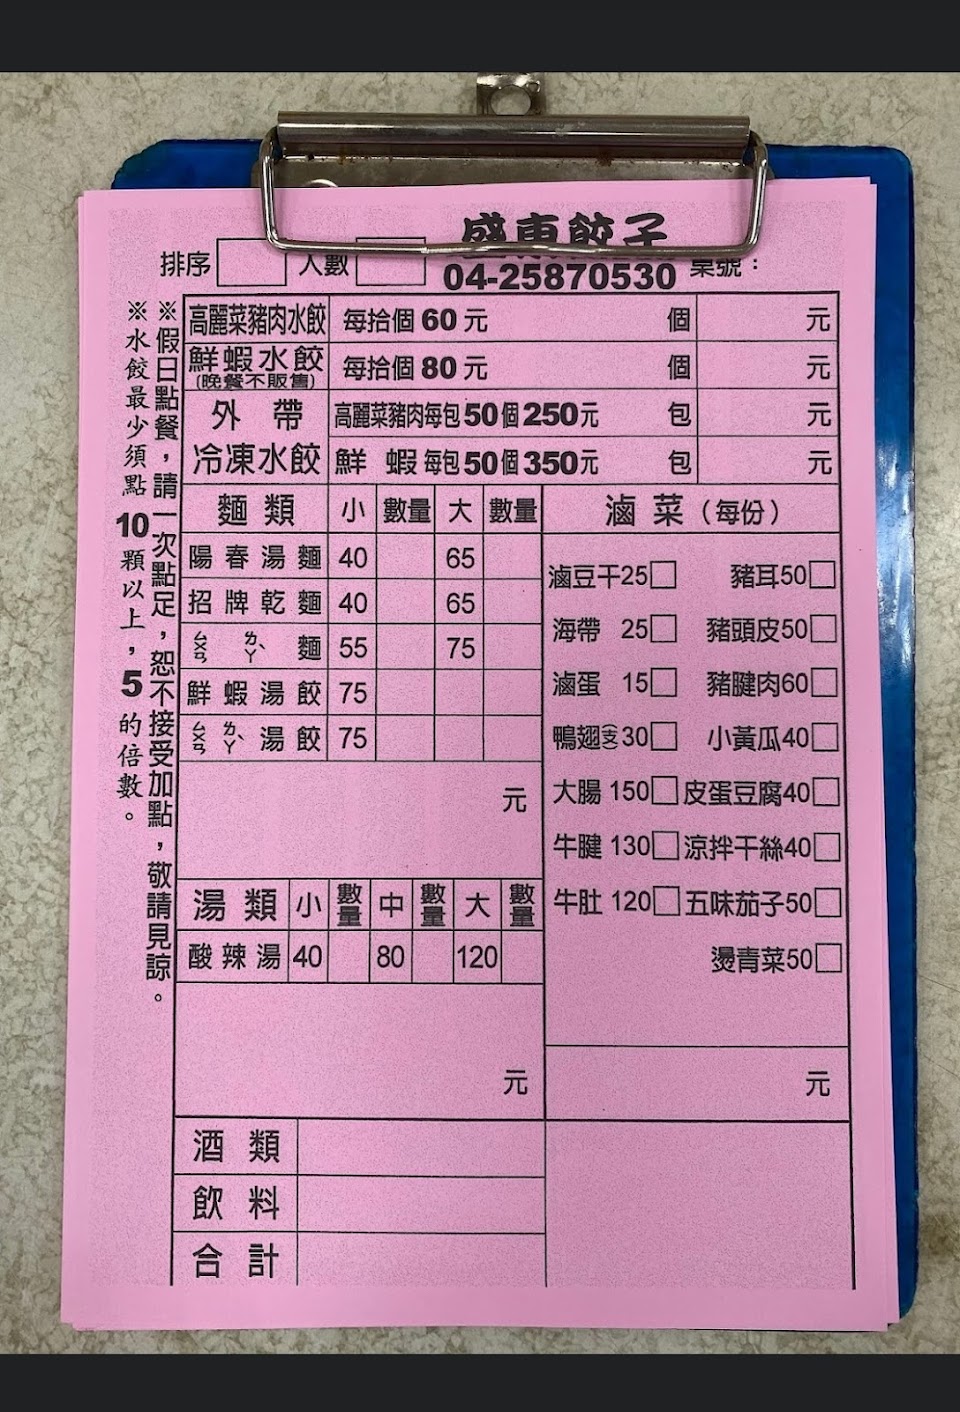 盛東餃子
排序 人數 04-25870530 桌號：
高麗菜豬肉水餃 每拾個 60 元 個 元
鮮蝦水餃 (晚餐不販售) 每拾個 80 元 個 元
外帶 高麗菜豬肉每包 50 個 250 元 包 元
冷凍水餃 鮮蝦 每包 50 個 350 元 包 元
麵類 小 數量 大 數量
陽春湯麵 40 65
招牌乾麵 40 65
ㄙㄨㄢ ㄌㄚˋ 麵 55 75
鮮蝦湯餃 75
ㄙㄨㄢ ㄌㄚˋ 湯餃 75
元
湯類 小 數量 中 數量 大 數量
酸辣湯 40 80 120
元
滷菜（每份）
滷豆干25□ 豬耳50□
海帶 25□ 豬頭皮50□
滷蛋 15□ 豬腱肉60□
鴨翅(支)30□ 小黃瓜40□
大腸 150□ 皮蛋豆腐40□
牛腱 130□ 涼拌干絲40□
牛肚 120□ 五味茄子50□
燙青菜50□
元
酒類
飲料
合計
※假日點餐，請一次點足，恕不接受加點，敬請見諒。
※水餃最少須點10顆以上，5的倍數。